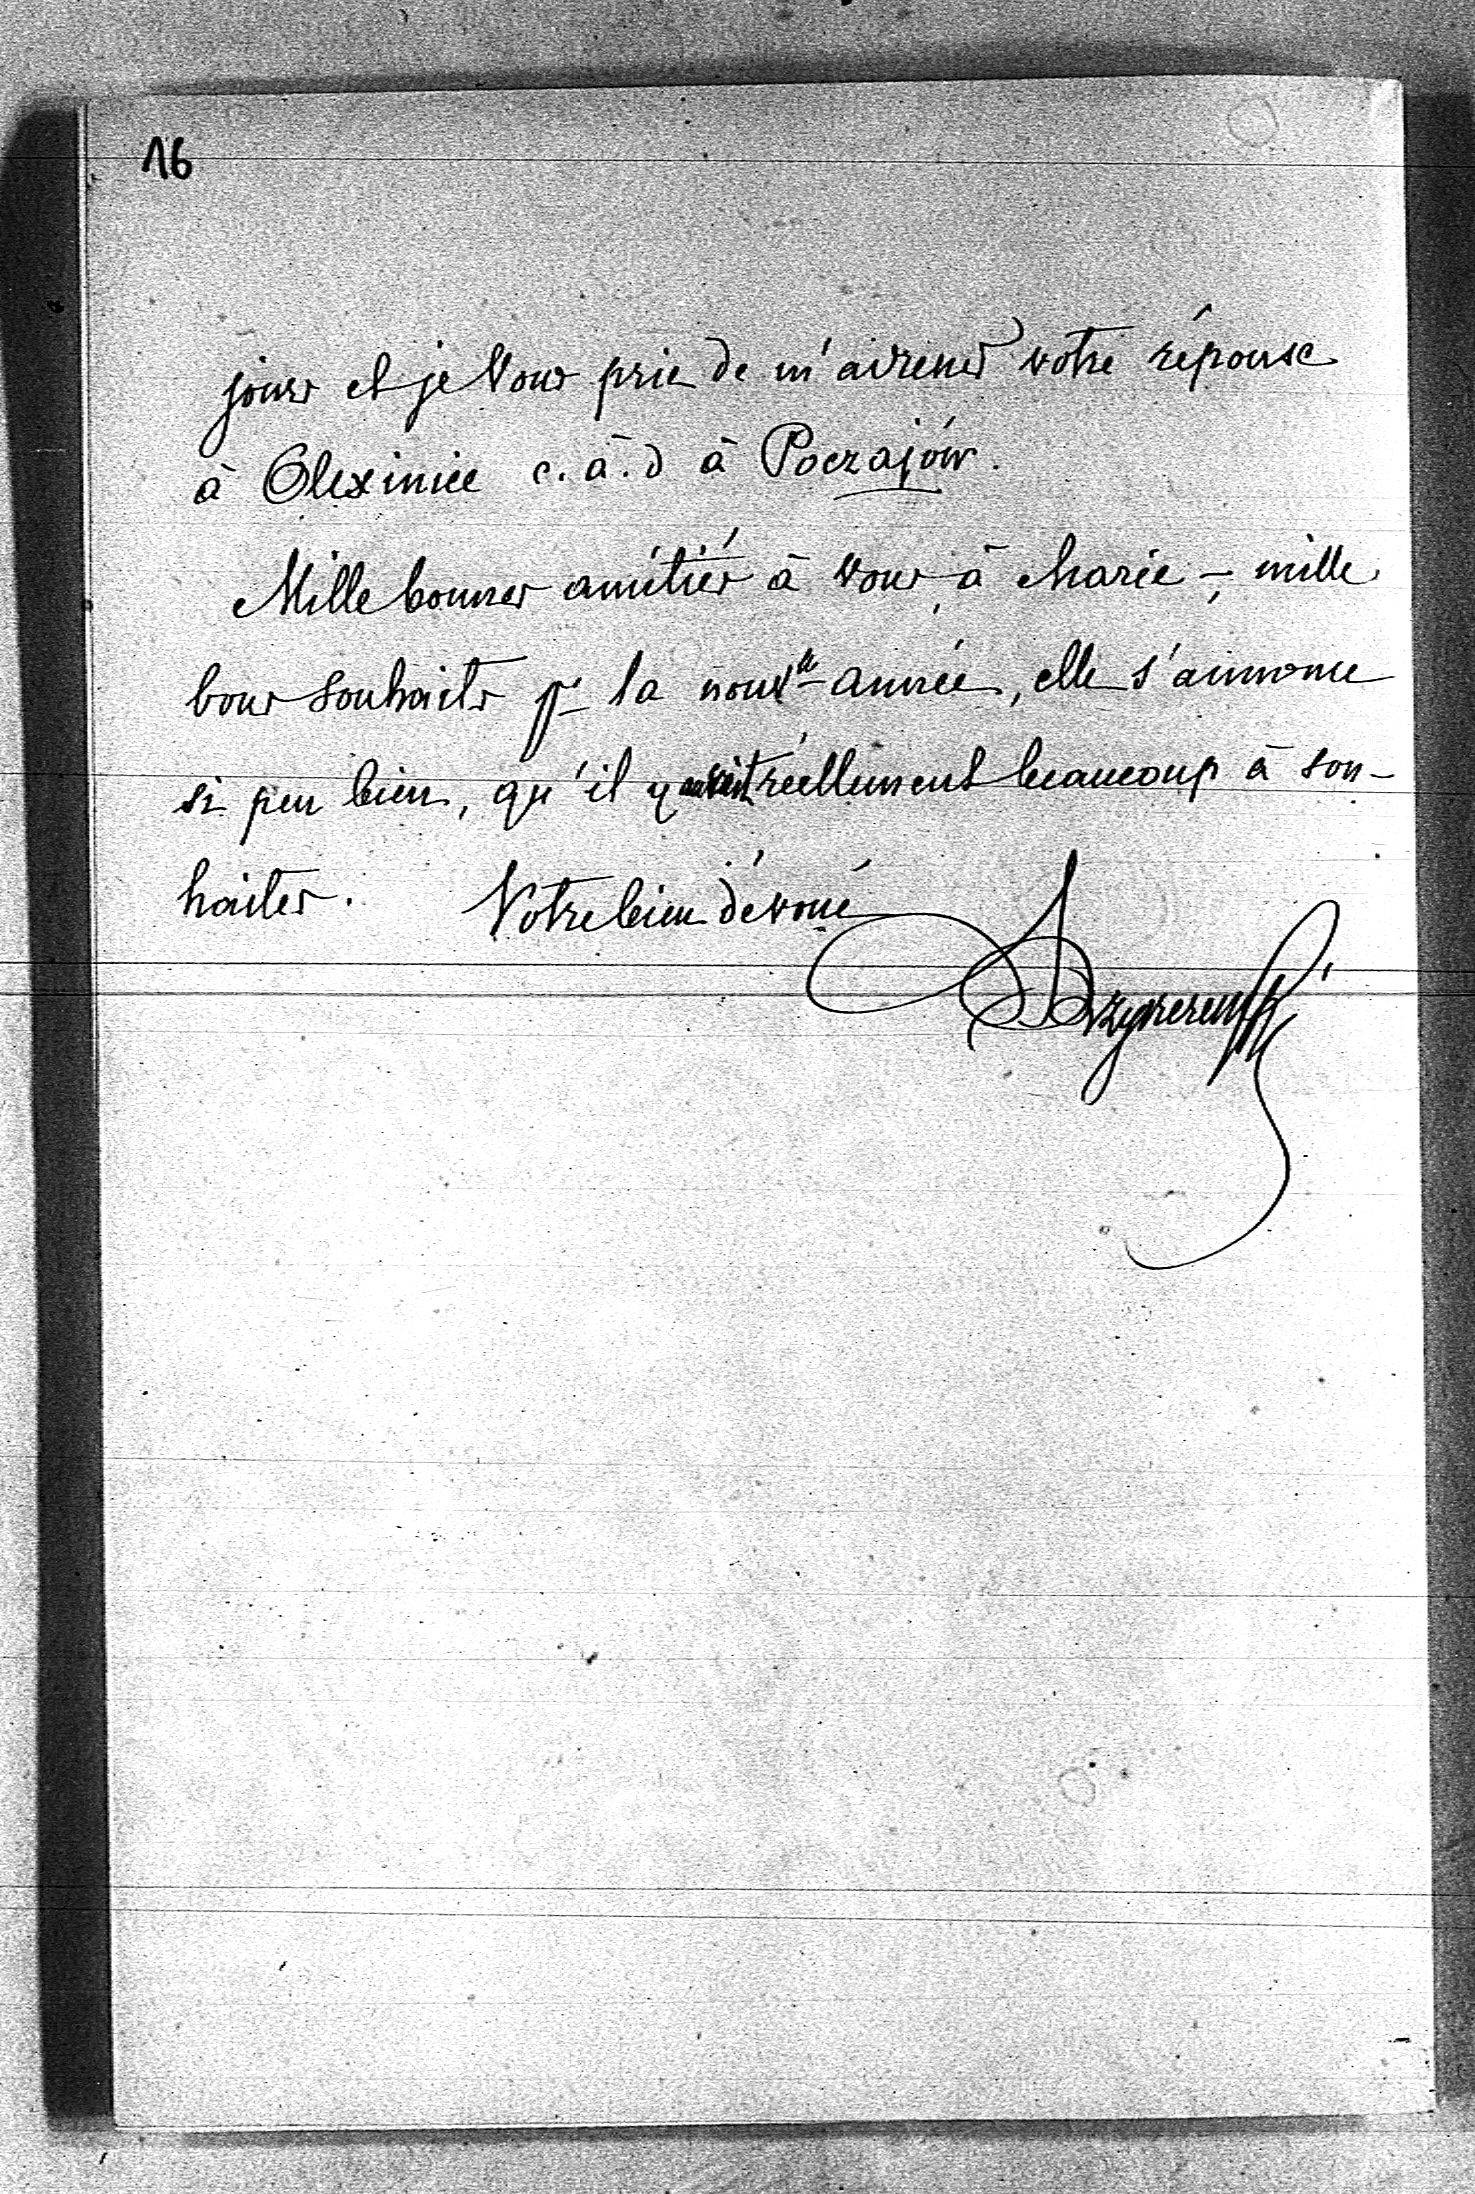 16
jours et je Vous prie de m'adresser votre réponse
à Olexiniec c. à. d à Poczajów.
Mille bonnes amitiés à Vous, à Marie -, mille
bons souhaits pr la nouvlle année, elle s'annonce
si peu bien, qu'il y aurait réellement beaucoup à sou-
haiter. Votre bien dévoué